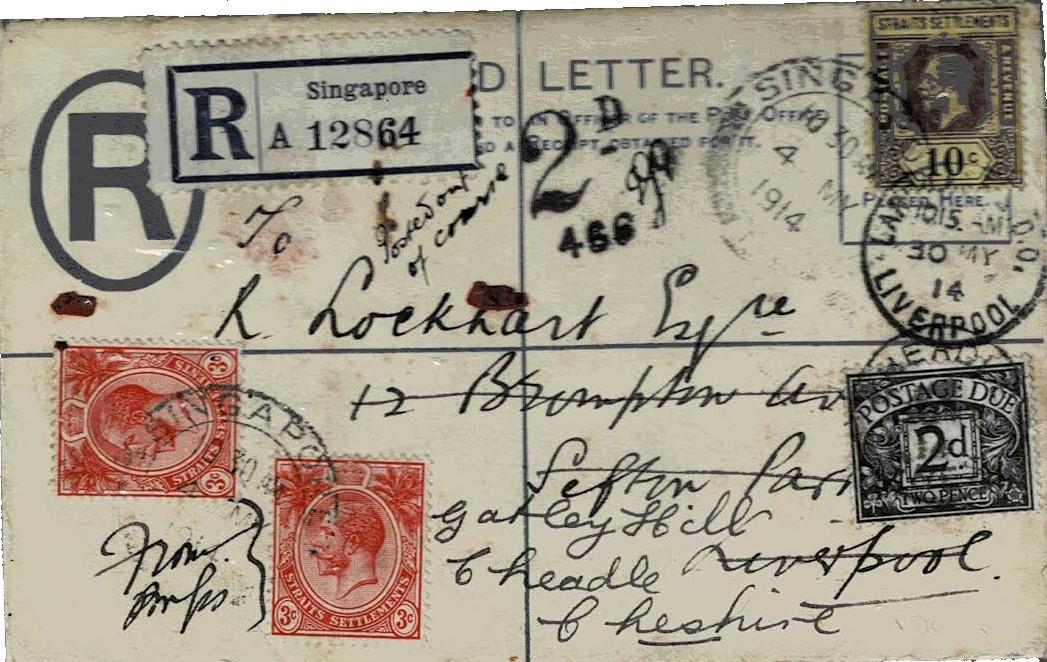 D LETTER.
TO AN OFFICER OF THE POST OFFICE
D A RECEIPT OBTAINED FOR IT.
R
R
Singapore
A 12864
2D
466
SING
10 30
4 MY
1914
STRAITS SETTLEMENTS
POSTAGE & REVENUE
10c
PLACED HERE.
10 15 AM
30 MY
14
LIVERPOOL
To
Posted out
of course
R. Lockhart Esqre
12 Brompton Av
Sefton Park
Gatley Hill
Cheadle Liverpool.
Cheshire
POSTAGE DUE
2d
TWO PENCE
3c
STRAITS SE
3c
SINGAPO
30 AM
MY
STRAITS SETTLEMENTS
3c
3c
From